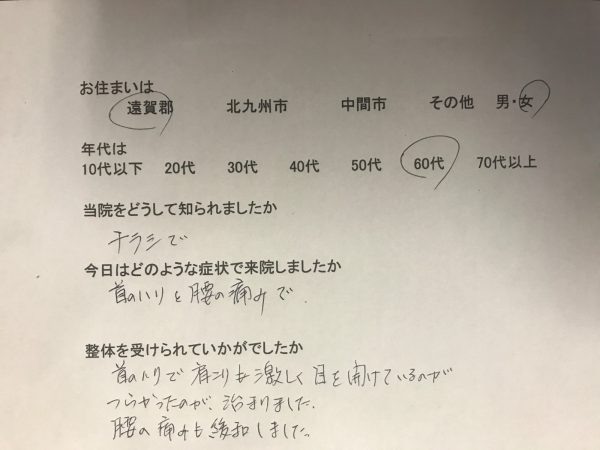 お住まいは
遠賀郡 北九州市 中間市 その他 男・女
年代は
10代以下 20代 30代 40代 50代 60代 70代以上
当院をどうして知られましたか
チラシで
今日はどのような症状で来院しましたか
首のハリと腰の痛みで
整体を受けられていかがでしたか
首のハリで肩コリも激しく目を開けているのが
つらかったのが、治まりました。
腰の痛みも緩和しました。